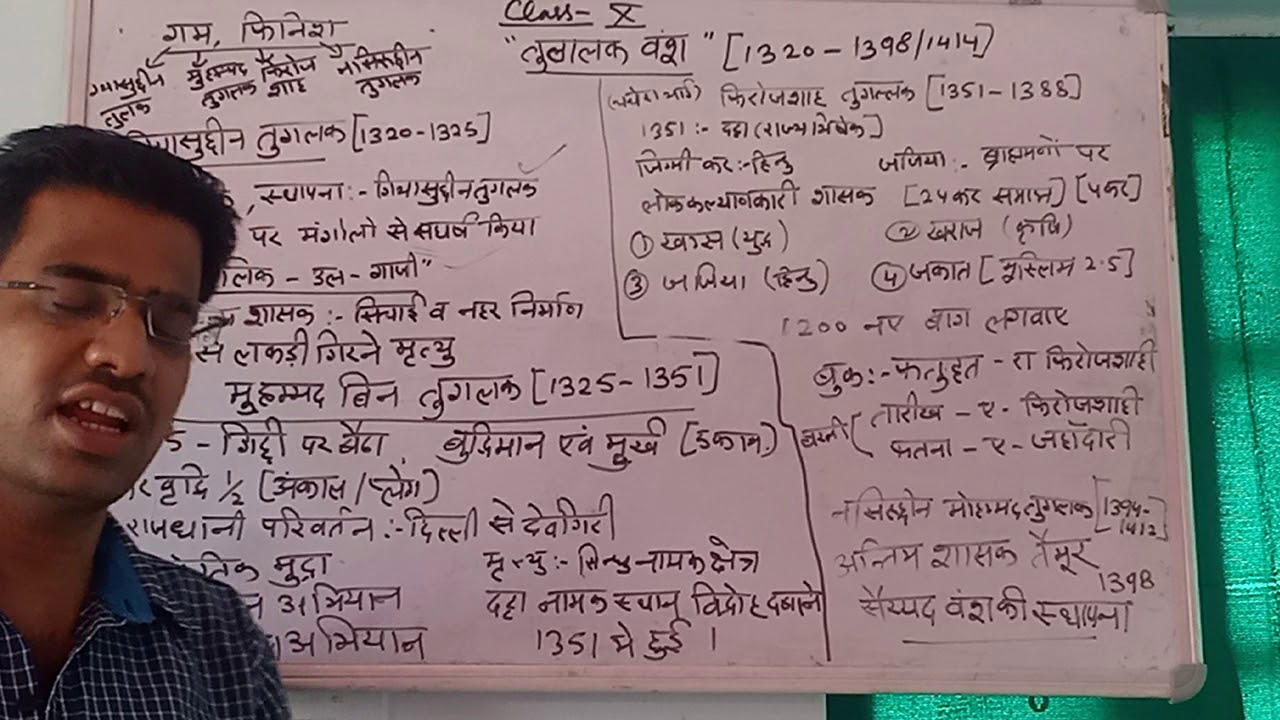 Class- X
गम, फिनिश
गयासुद्दीन तुलक
मुहम्मद तुगलक
फिरोज शाह
नासिरुद्दीन तुगलक
"तुगलक वंश" [1320-1398/1414]
यासुद्दीन तुगलक [1320-1325]
, स्थापना:- गियासुद्दीन तुगलक
पर मंगोलो से संघर्ष किया
लिक - उल - गाजी"
शासक :- सिचाई व नहर निर्माण
से लकड़ी गिरने मृत्यु
मुहम्मद बिन तुगलक [1325-1351]
5 - गिद्दी पर बैठा, बुद्धिमान एवं मुर्ख [इकाम]
र वृद्धि 1/2 [अंकाल / प्लेग]
राजधानी परिवर्तन :- दिल्ली से देवगिरी
तिक मुद्रा
अभियान
अभियान
मृत्यु :- सिन्धु नामक क्षेत्र
दट्टा नामक स्थान विद्रोह दबाने
1351 मे हुई ।
(चचेरा भाई) फिरोजशाह तुगलक [1351-1388]
1351 :- दट्टा (राज्याभिषेक]
जिम्मी कर :- हिन्दु जजिया :- ब्राह्मणों पर
लोककल्याणकारी शासक [24 कर समाप्त] [4 कर]
① खम्स (युद्ध) ② खराज (कृषि)
③ जजिया (हिन्दु) ④ जकात [मुस्लिम 2.5]
1200 नए बाग लगवाए
बुक :- फतुहत - रा फिरोजशाही
बरनी ( तारीख - ए - फिरोजशाही
फतना - ए - जहाँदारी
नासिरुद्दीन मोहम्मद तुगलक [1394-1412]
अन्तिम शासक तैमूर
1398
सैय्यद वंश की स्थापना